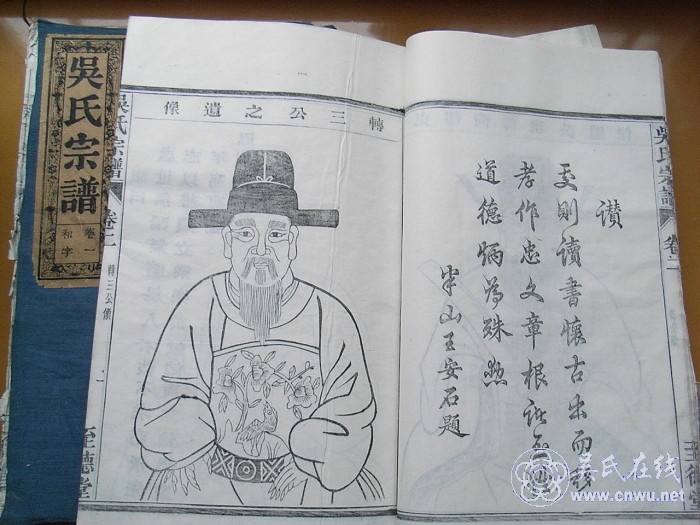 吳氏宗譜
卷一
和字
轉三公之遺像
吳氏宗譜
卷二
轉三公像
至德堂
讃
則讀書懷古出而移
孝作忠文章根
道德炳為殊
半山王安石題
吳氏宗譜
卷二
吴氏在线
www.cnwu.net